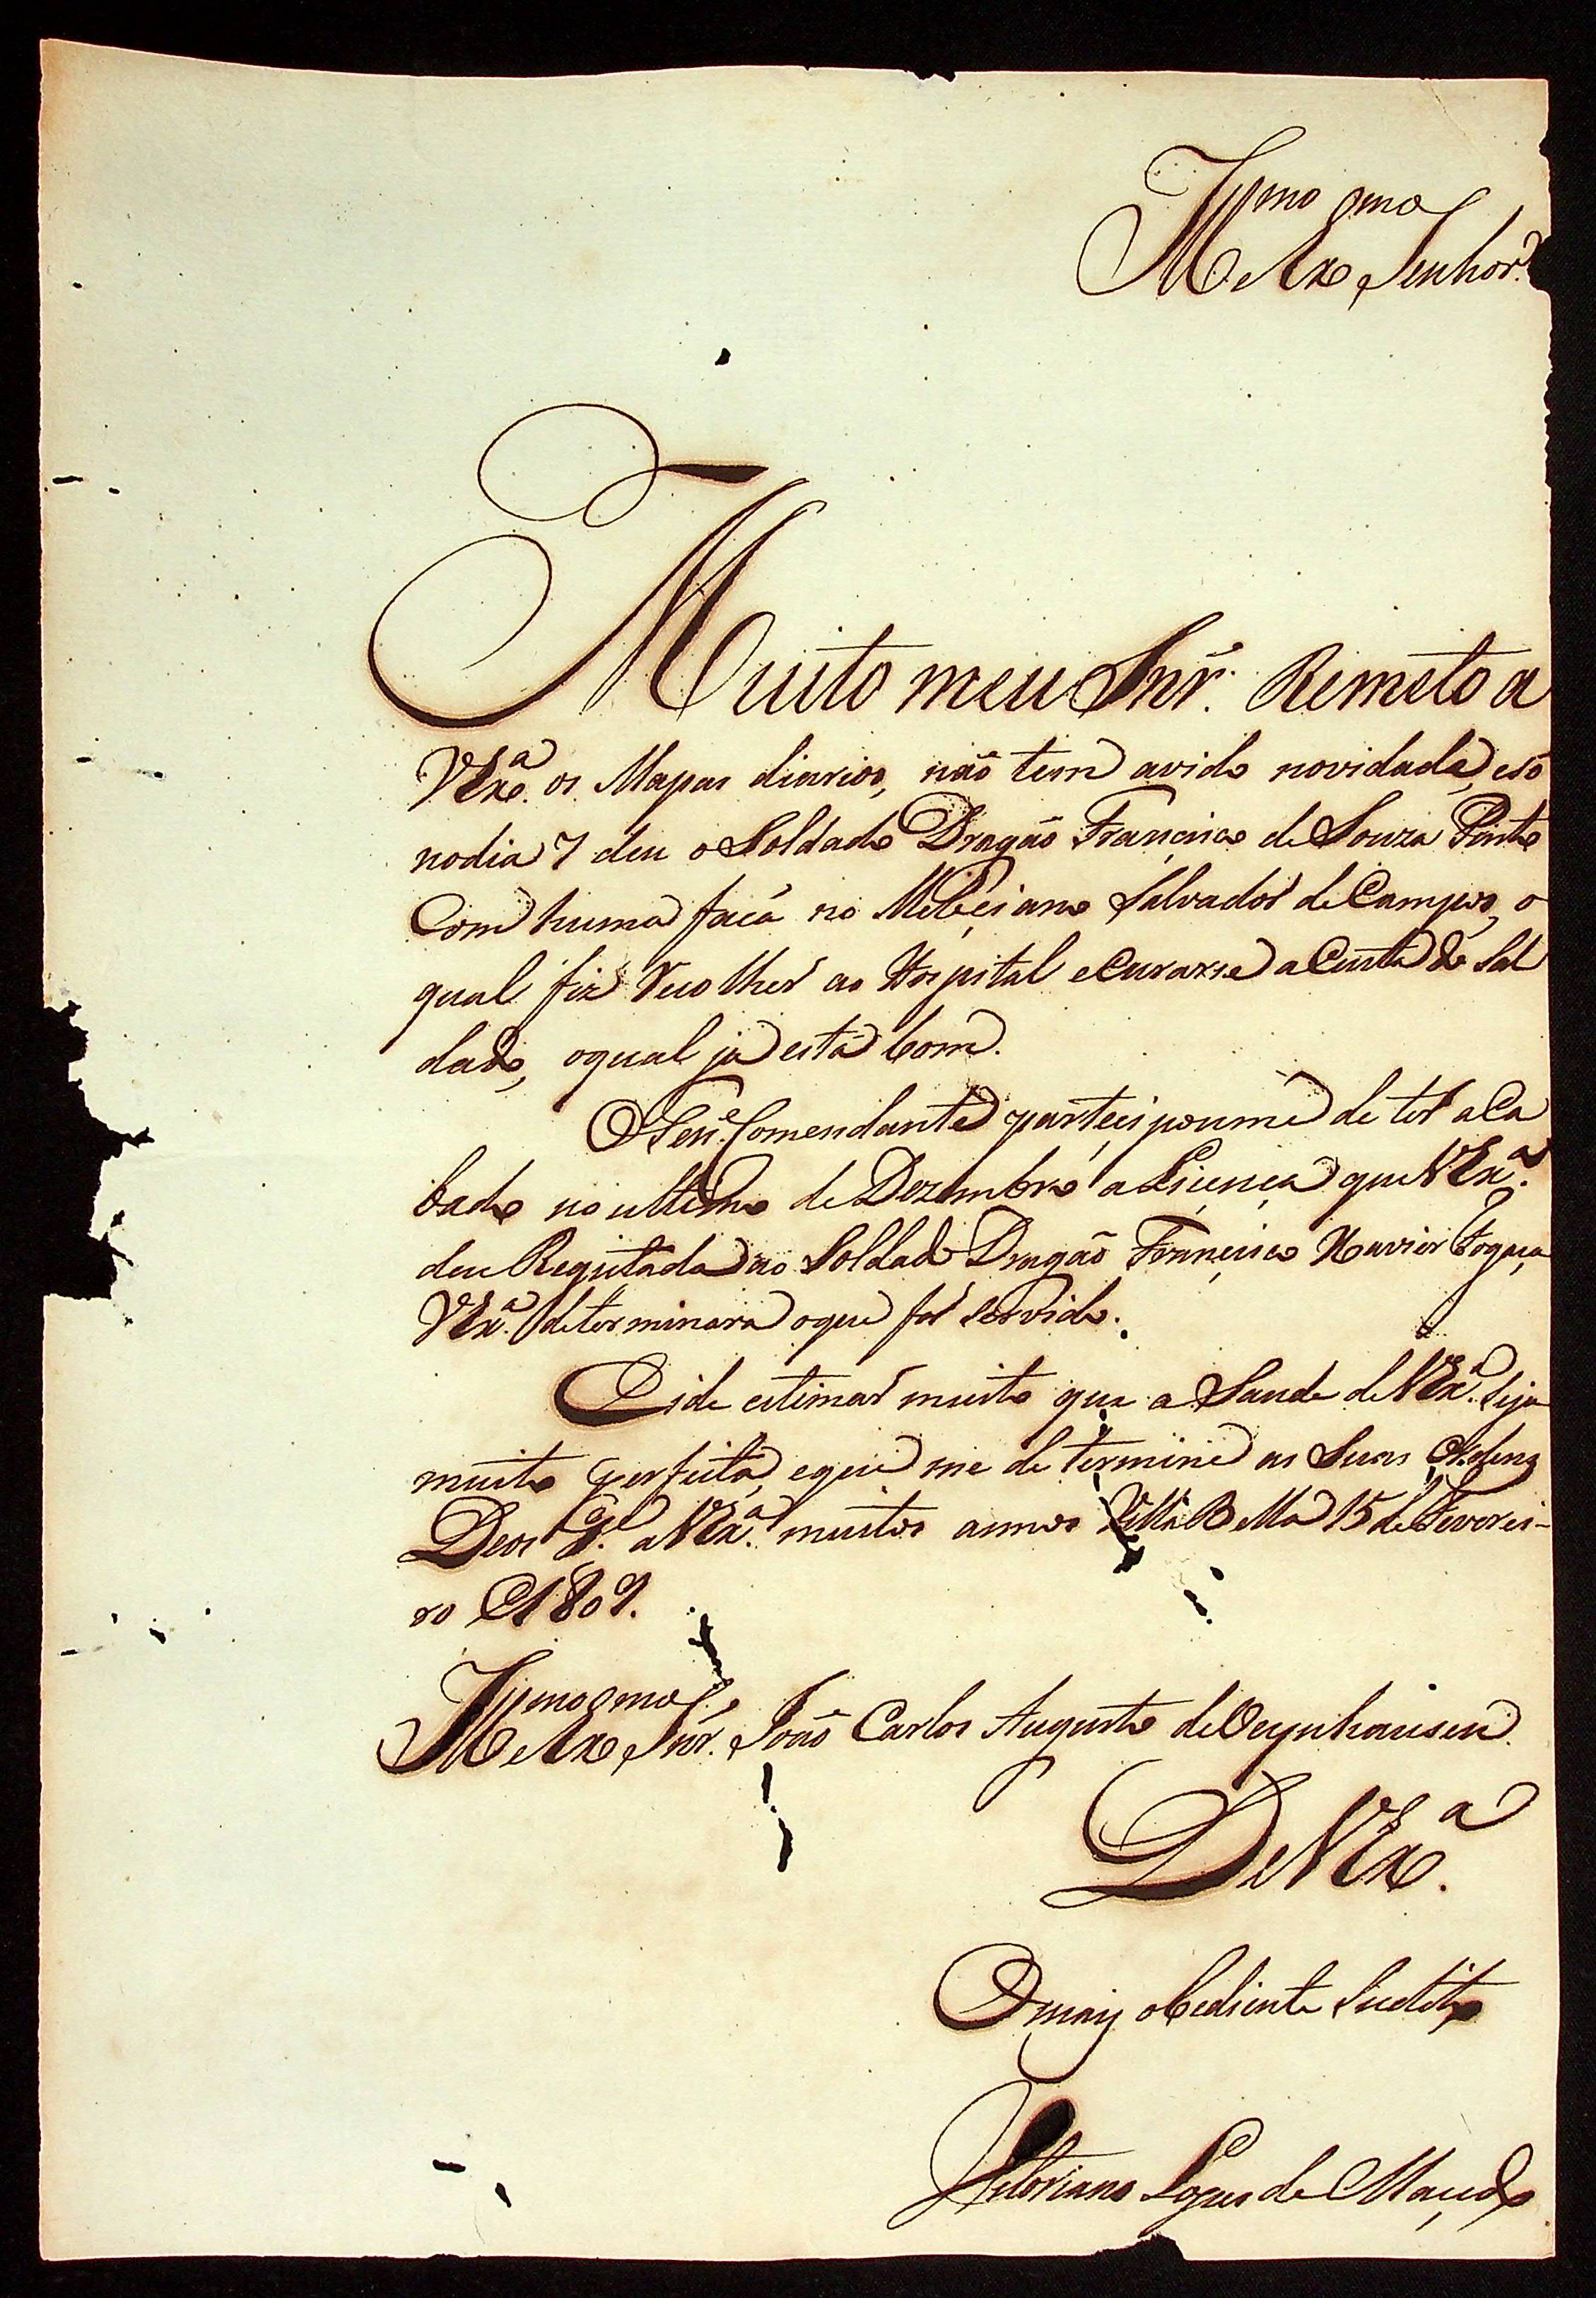 Illmo. e Exmo. Senhor.
Muito meu Snr. Remeto a
VExa. os Mapas diarios, não tem avido novidade, e só
no dia 7 deu o Soldado Dragão Francisco de Souza Pinto
Com huma faca no Meliciano Salvador de Campos, o
qual fiz Recolher ao Hospital e Curarse a Custa do Sol
dado, o qual já está bom.
O Tene. Comendante partecipoume de ter aCa
bado no ultimo de Dezembro a Licença que VExa.
deu Registada ao Soldado Dragão Francisco Xavier Fogaça
VExa. determinara o que for Servido.
Eide estimar muito que a Saude de VExa. Seja
muito perfeita, e que me determine as Suas Ordens
Deos Ge. a VExa. muitos annos Villa Bella 15 de Feverei-
ro de 1809.
Illmo. e Exmo. Snr. João Carlos Augusto de Oeynhausen
De VExa.
O mais obediente Sudito
Victoriano Lopes de Macedo